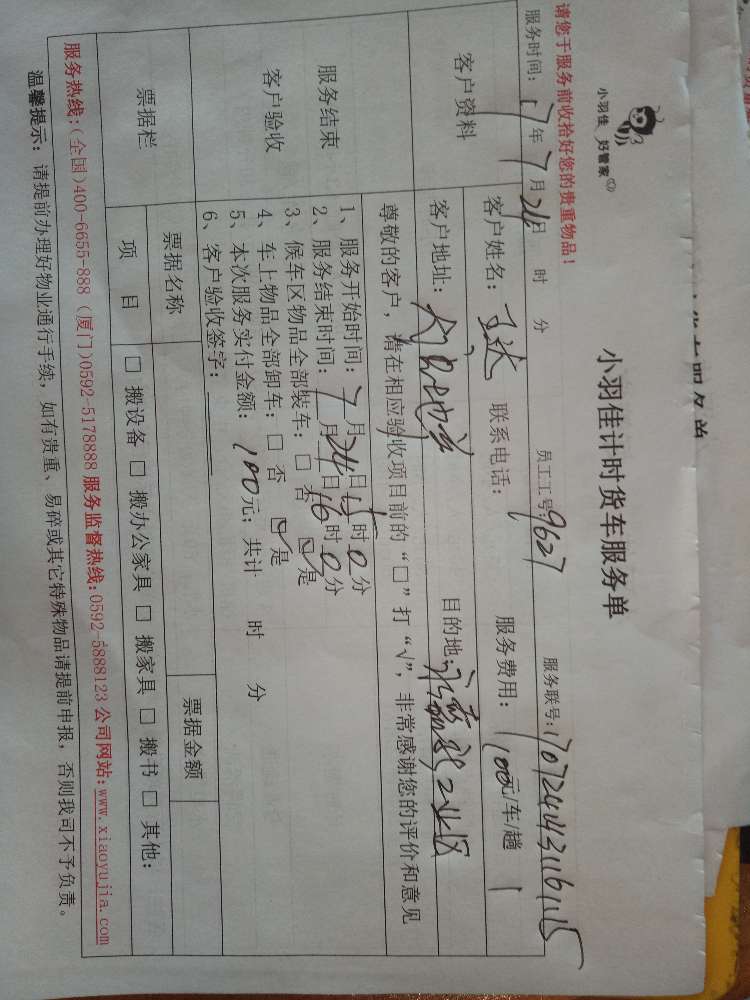 小羽佳 好管家
小羽佳计时货车服务单
员工工号:9627 服务联号:170724431161115
请您于服务前收拾好您的贵重物品!
服务时间: 17年 7月 24日 时 分
客户资料
客户姓名: 联系电话: 服务费用: 100元/车/趟
客户地址: 目的地: 工业区
服务结束
客户验收
尊敬的客户,请在相应验收项目前的“□”打“√”,非常感谢您的评价和意见
1、服务开始时间: 7月24日15时0分
2、服务结束时间: 7月24日16时0分
3、候车区物品全部装车: □ 否 ☑ 是
4、车上物品全部卸车: □ 否 ☑ 是
5、本次服务实付金额: 100元; 共计 时 分
6、客户验收签字:
票据栏
票据名称 票据金额
项 目 □ 搬设备 □ 搬办公家具 □ 搬家具 □ 搬书 □ 其他:
服务热线:(全国)400-6655-888 (厦门)0592-5178888 服务监督热线:0592-5888123 公司网站:www.xiaoyujia.com
温馨提示: 请提前办理好物业通行手续,如有贵重、易碎或其它特殊物品请提前申报,否则我司不予负责。